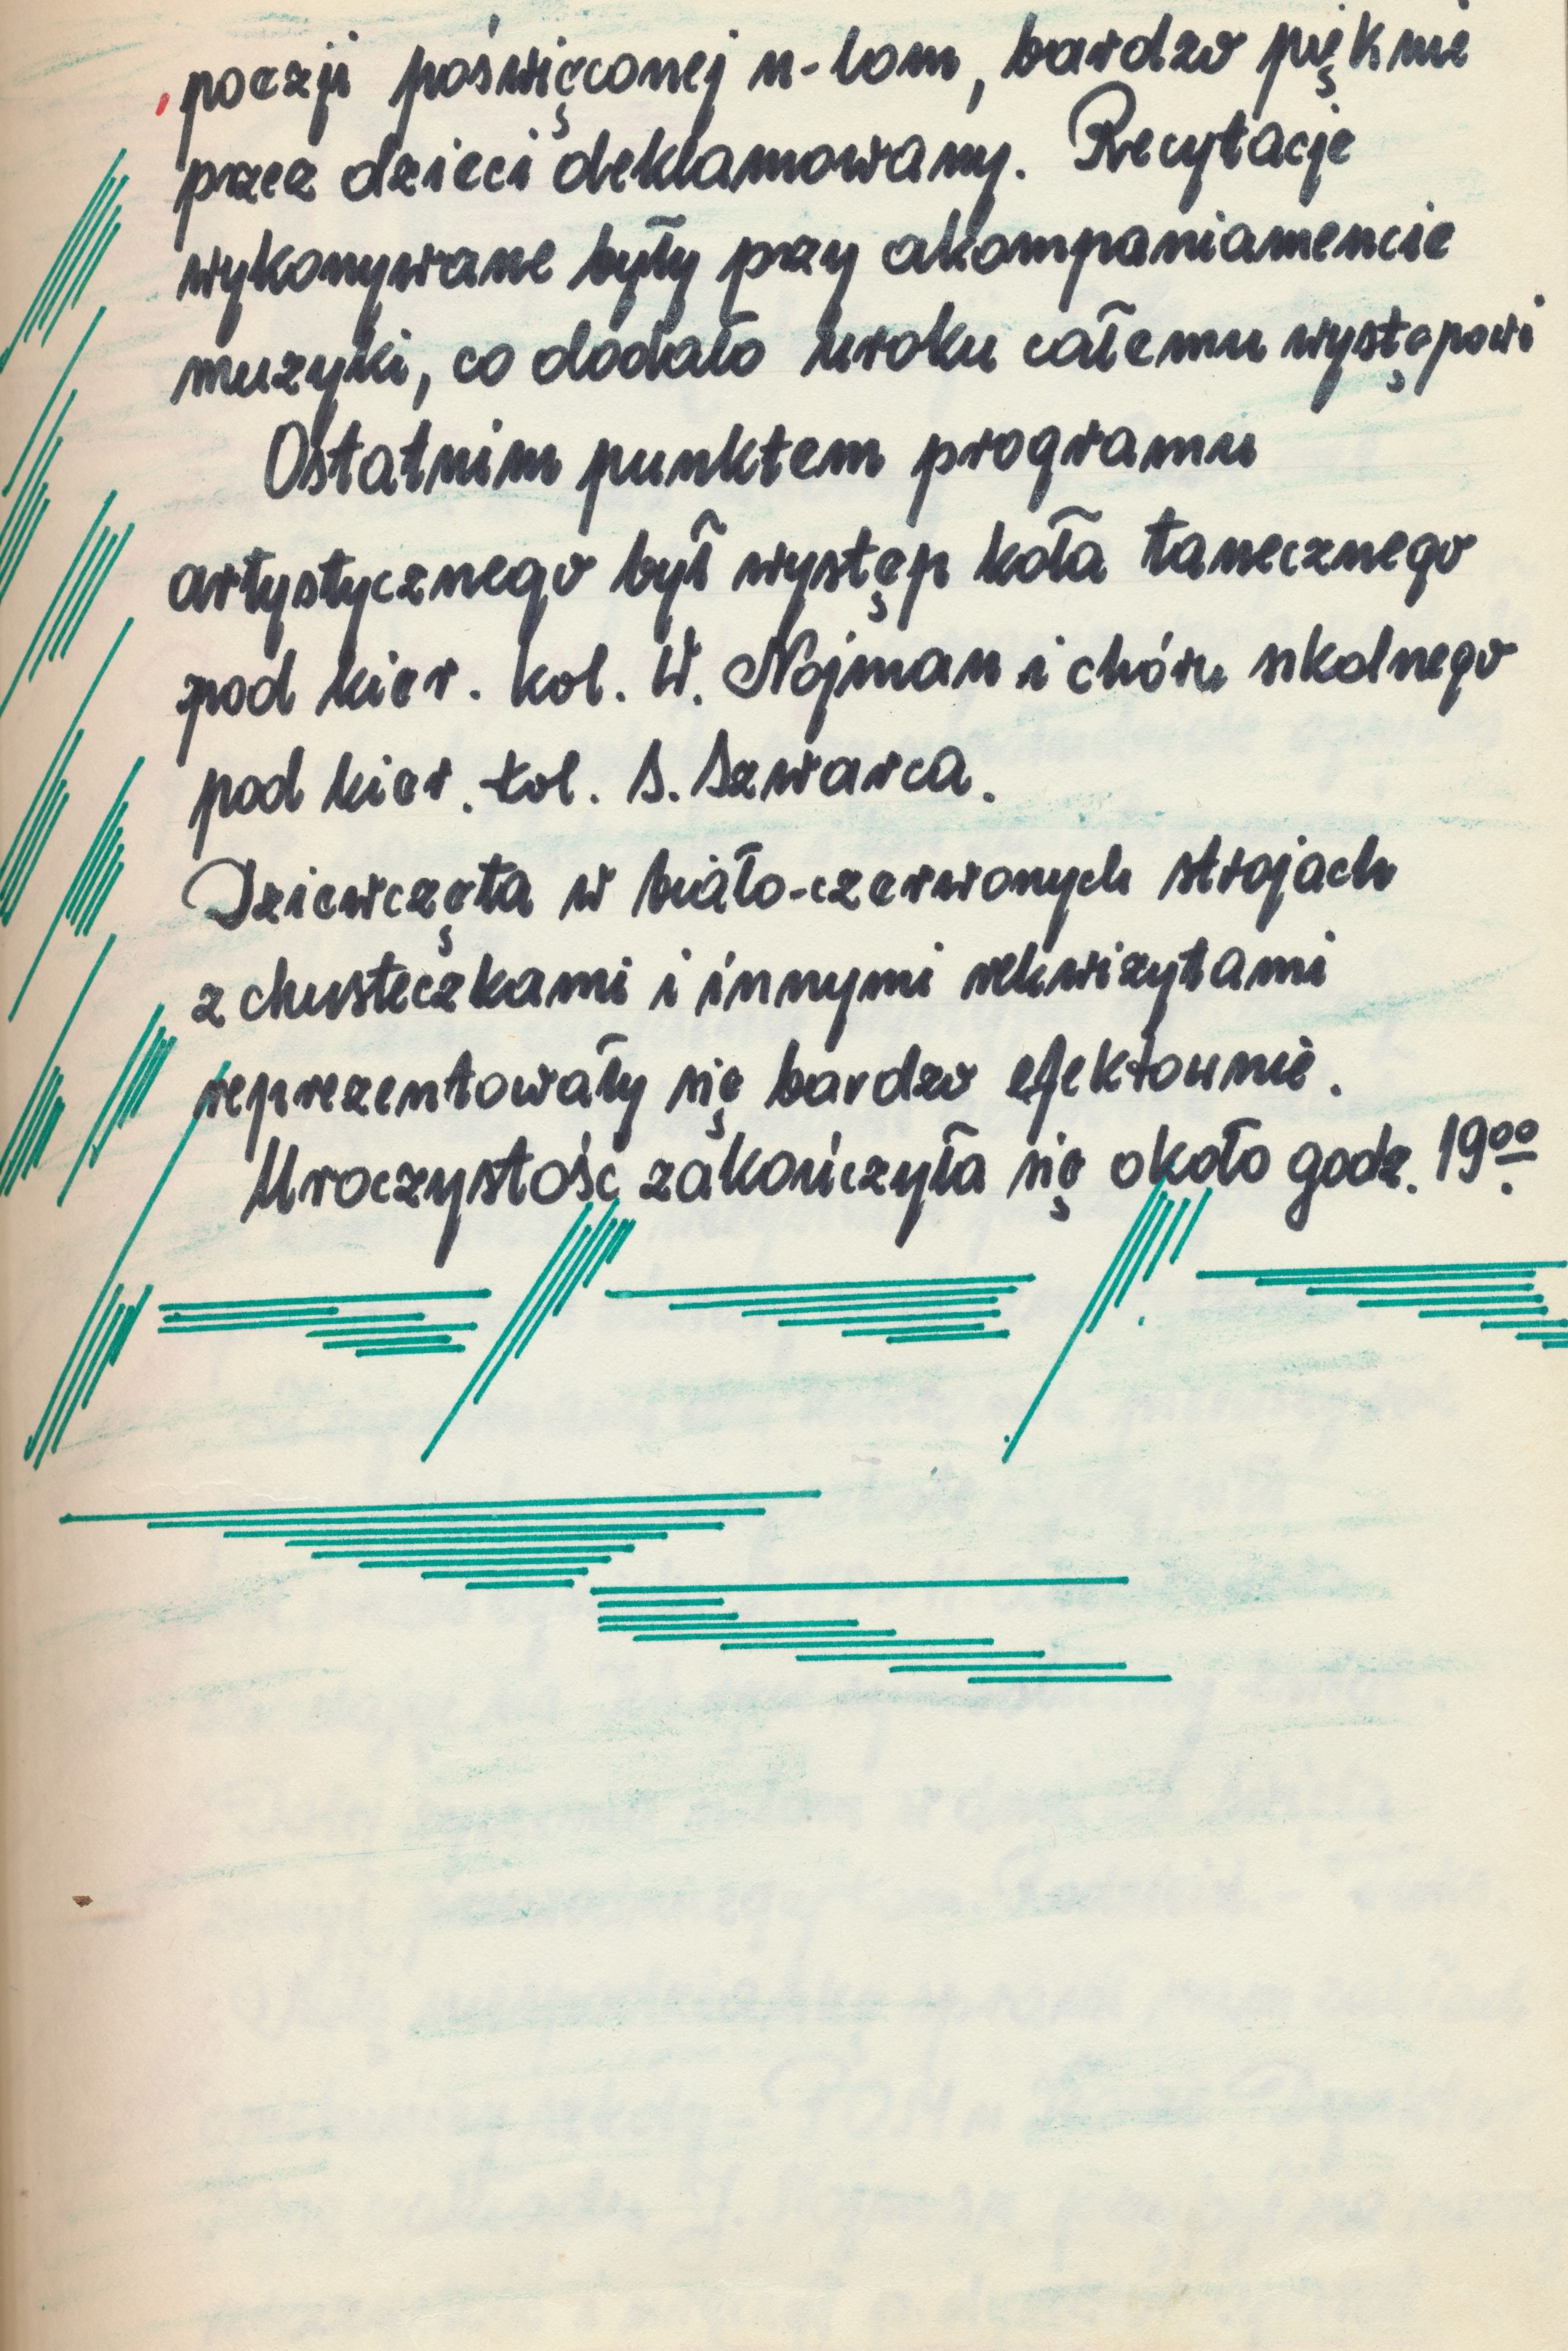 poezji poświęconej n-lom, bardzo pięknie
przez dzieci deklamowany. Recytacje
wykonywane były przy akompaniamencie
muzyki, co dodało uroku całemu występowi
Ostatnim punktem programu
artystycznego był występ koła tanecznego
pod kier. kol. W. Nojman i chóru szkolnego
pod kier. kol. S. Szwarca.
Dziewczęta w biało-czerwonych strojach
z chusteczkami i innymi rekwizytami
reprezentowały się bardzo efektownie.
Uroczystość zakończyła się około godz. 19⁰⁰.